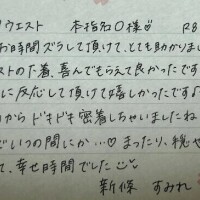 ウエスト 本指名〇様♡ R8
お時間ズラして頂けて、とても助かりました
ストのた着、喜んでもらえて良かったです
に反応して頂けて嬉しかったです♪
からドキドキ密着しちゃいましたね
どいつの間にか…♡まったり、秘や
て、幸せ時間でした
新條 すみれ